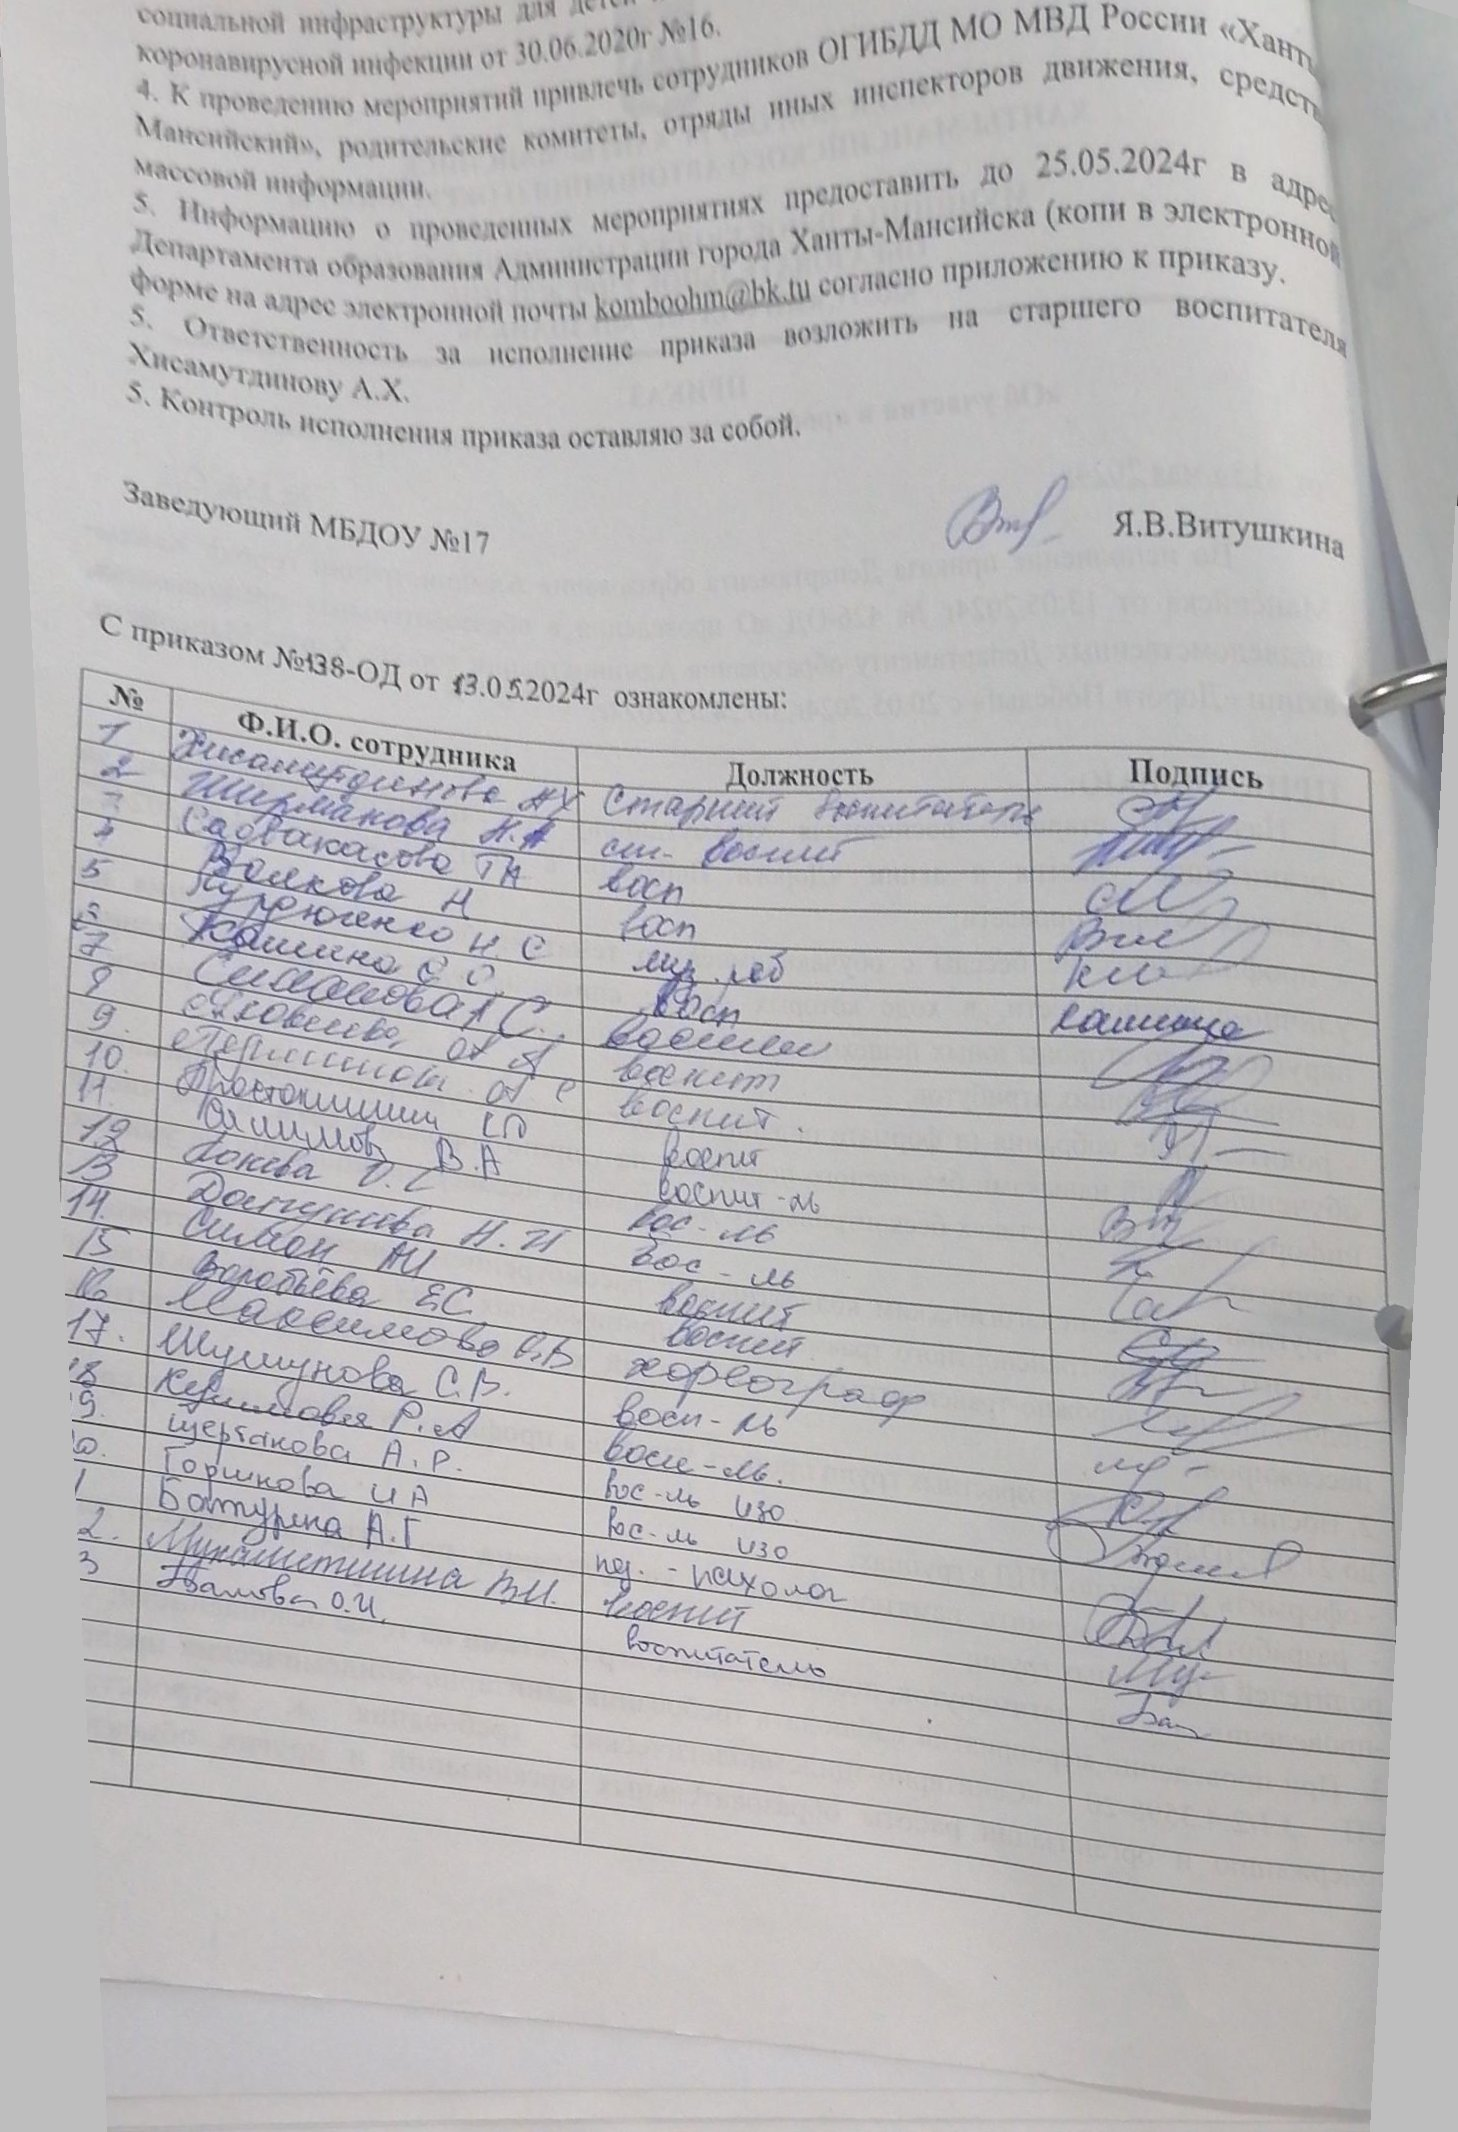 социальной инфраструктуры для детей
коронавирусной инфекции от 30.06.2020г №16.
4. К проведению мероприятий привлечь сотрудников ОГИБДД МО МВД России «Ханты
Мансийский», родительские комитеты, отряды юных инспекторов движения, средств
массовой информации.
5. Информацию о проведенных мероприятиях предоставить до 25.05.2024г в адрес
Департамента образования Администрации города Ханты-Мансийска (копи в электронной
форме на адрес электронной почты komboohm@bk.tu согласно приложению к приказу.
5. Ответственность за исполнение приказа возложить на старшего воспитателя
Хисамутдинову А.Х.
5. Контроль исполнения приказа оставляю за собой.
Заведующий МБДОУ №17 Я.В.Витушкина
С приказом №138-ОД от 13.05.2024г ознакомлены:
№ Ф.И.О. сотрудника Должность Подпись
1 Хисамутдинова АХ Старший воспитатель
2 Ширманова Н.А ст- воспит
3 Садвакасова ТН восп
4 Волкова Н восп
5 Курдюченко Н. С муз. раб
6 Кашина О О восп кашина
7 Симонова С.
8 Яковлева воспит
9. воспит.
10. Простокишин воспит
11. В.А воспит-ль
12 вос-ль
13 Н.И вос-ль
14. Симон АИ воспит
15 Воробьёва Е.С. воспит
16 Максимова О.В хореограф
17. Шушунова С.В. восп-ль
18 Р.А восп-ль.
9. Щербакова А.Р. вос-ль изо
Горшкова И А вос-ль изо
1 Батурина А.Г пед.-психолог
2. Мухаметшина В.И. воспит
3 О.И. воспитатель